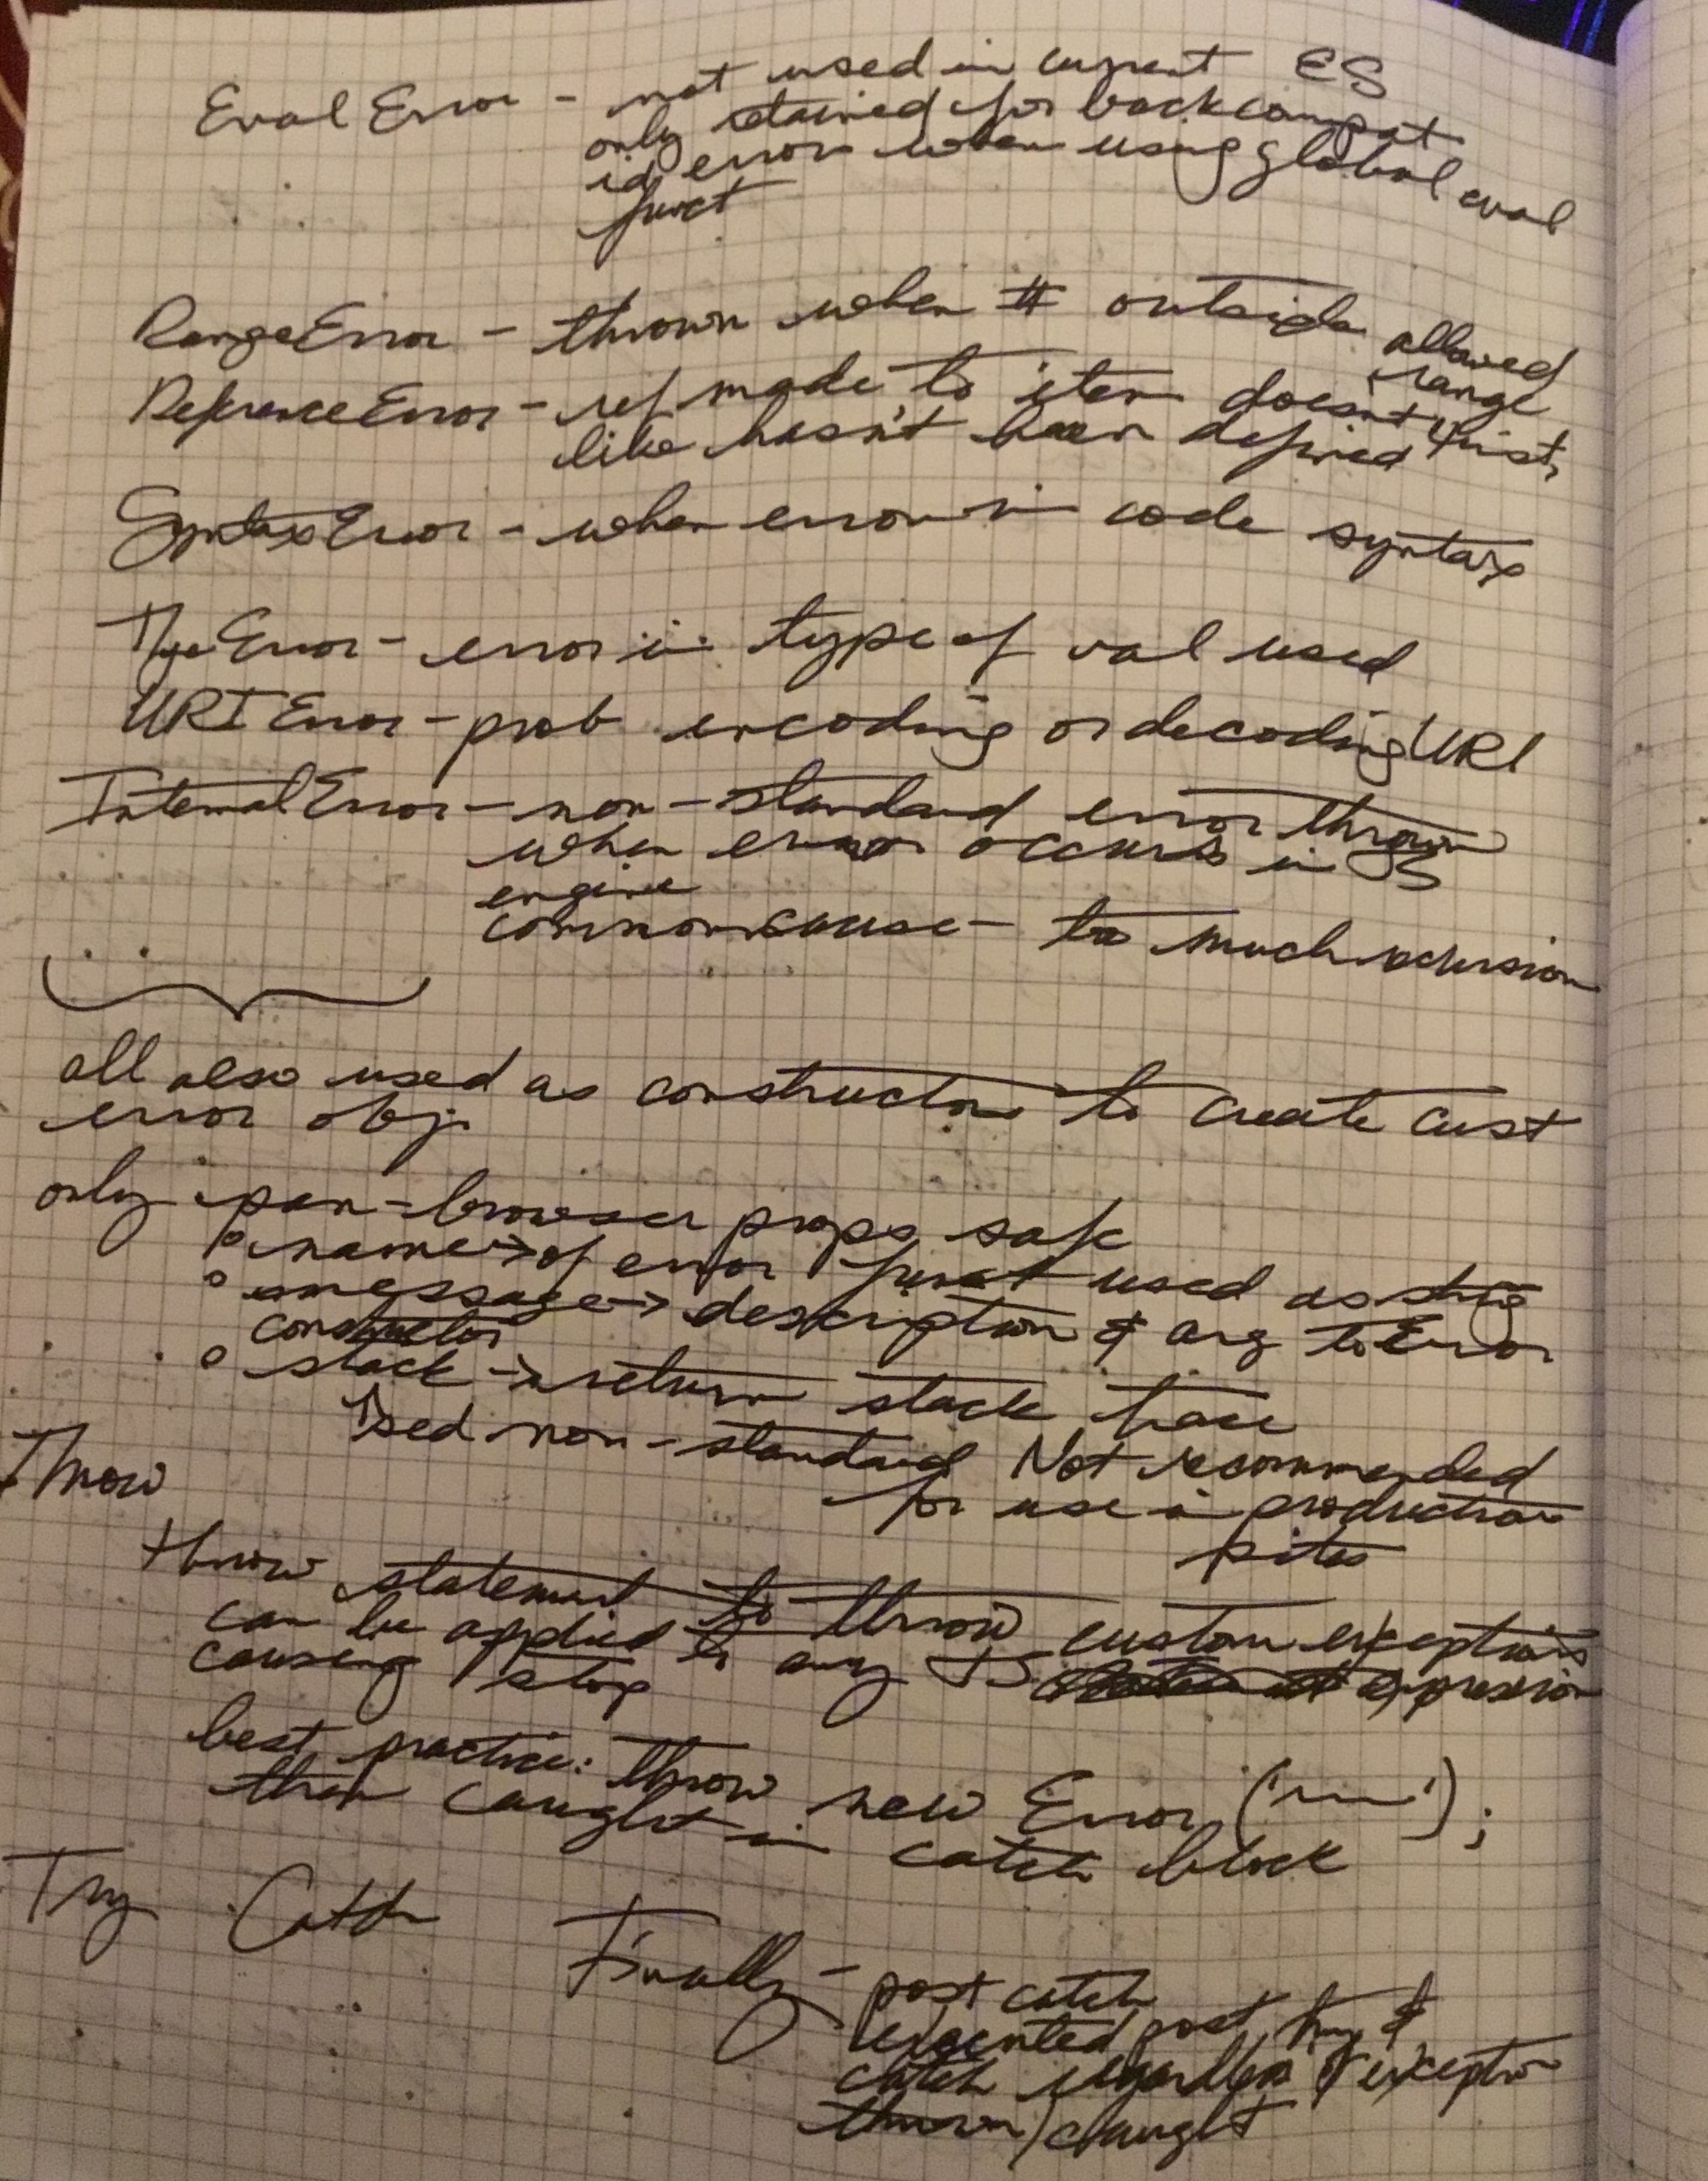 EvalError - not used in current ES
only retained for backcompat
id error when using global eval
funct
RangeError - thrown when # outside allowed
range
ReferenceError - ref made to item doesn't exist,
like hasn't been defined
SyntaxError - when error in code syntax
TypeError - error in type of val used
URIError - prob encoding or decoding URI
InternalError - non-standard error thrown
when error occurs in JS
engine
common cause - too much recursion
all also used as constructors to create cust
error obj.
only pan-browser props safe
name -> of error funct used as string
message -> description & arg to Error
constructor
stack -> return stack trace
non-standard Not recommended
for use in production
sites
Throw
throw statement to throw custom exceptions
can be applied to any JS expression
causing stop
best practice: throw new Error(' ');
then caught in catch block
Try Catch Finally - post catch
executed post try &
catch regardless if exception
thrown/caught